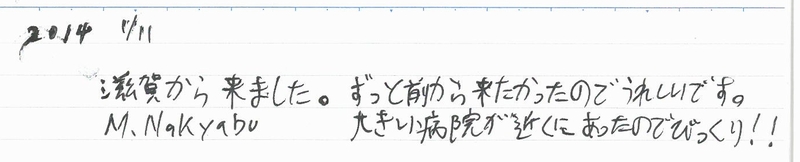 2014 1/11
滋賀から来ました。ずっと前から来たかったのでうれしいです。
M. Nakyabu 大きい病院が近くにあったのでびっくり!!